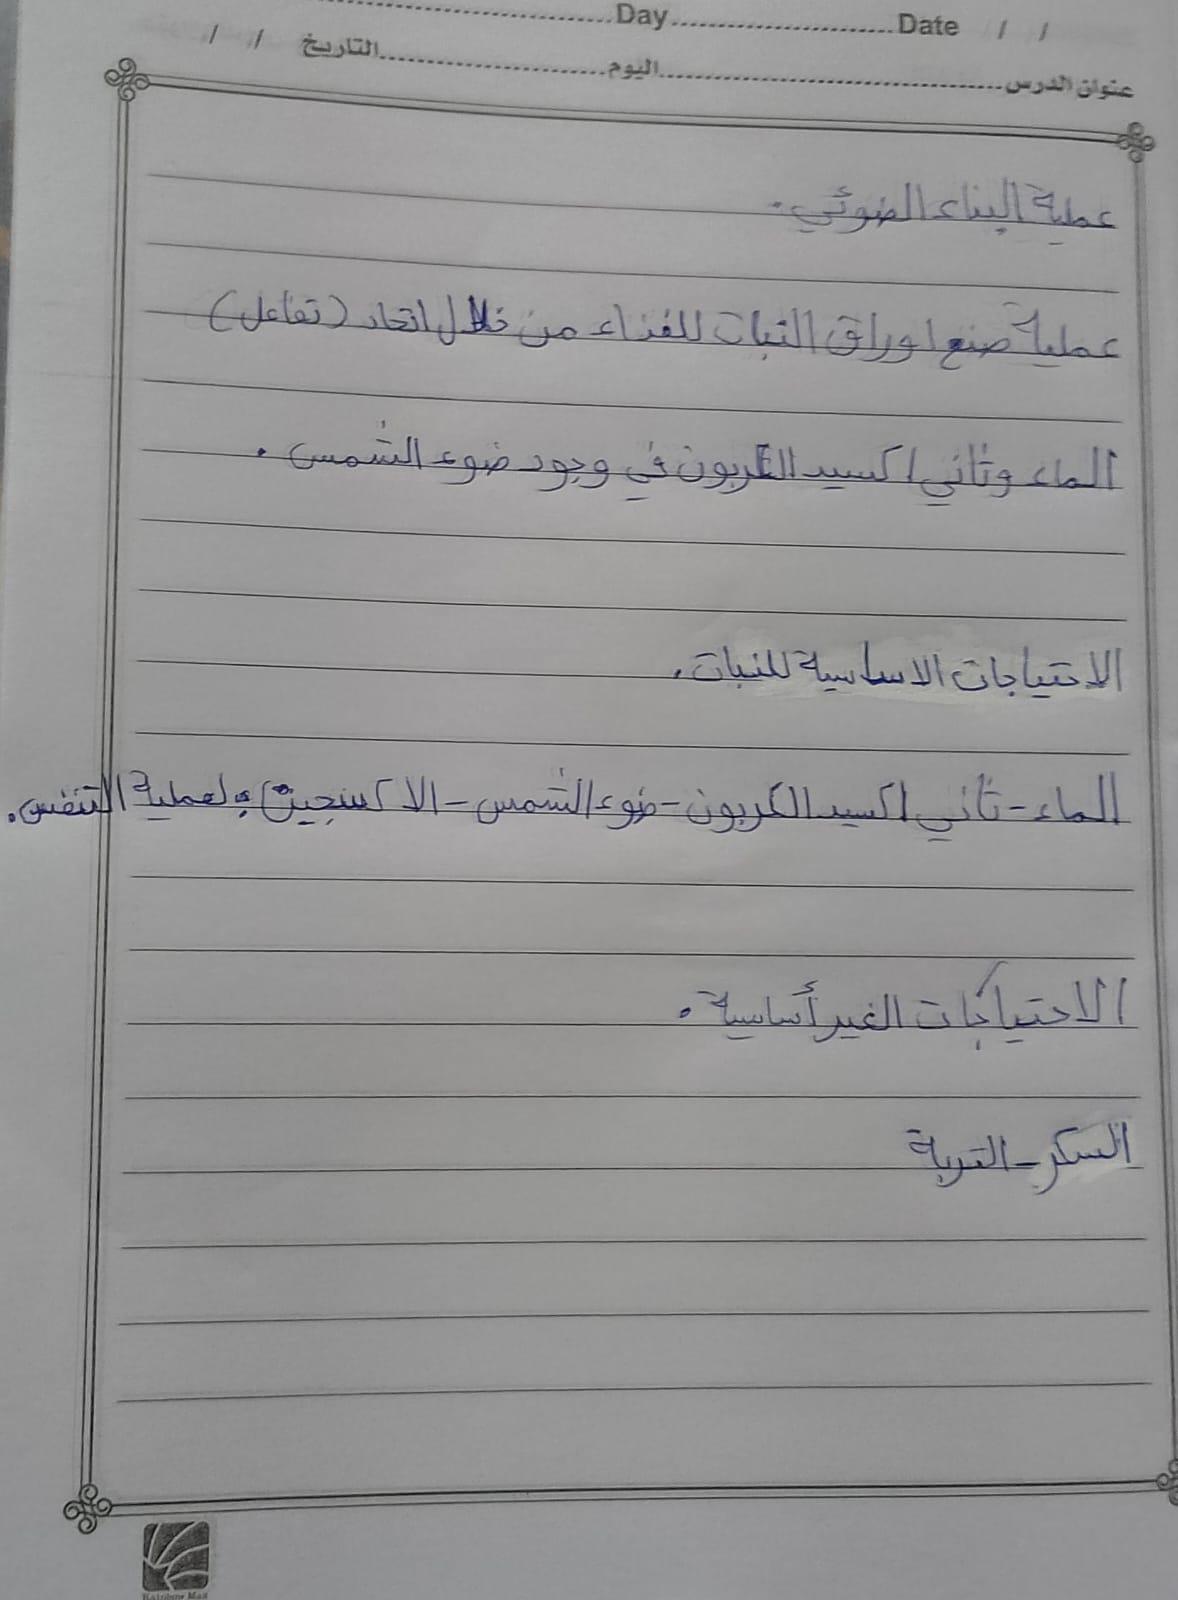 Day Date / /
عنوان الدرس اليوم التاريخ / /
عملية البناء الضوئي.
عملية صنع اوراق النبات للغذاء من خلال اتحاد (تفاعل)
الماء وثاني اكسيد الكربون في وجود ضوء الشمس.
الاحتياجات الاساسية للنبات.
الماء - ثاني اكسيد الكربون - ضوء الشمس - الاكسجين لعملية التنفس.
الاحتياجات الغير أساسية.
السكر - التربة